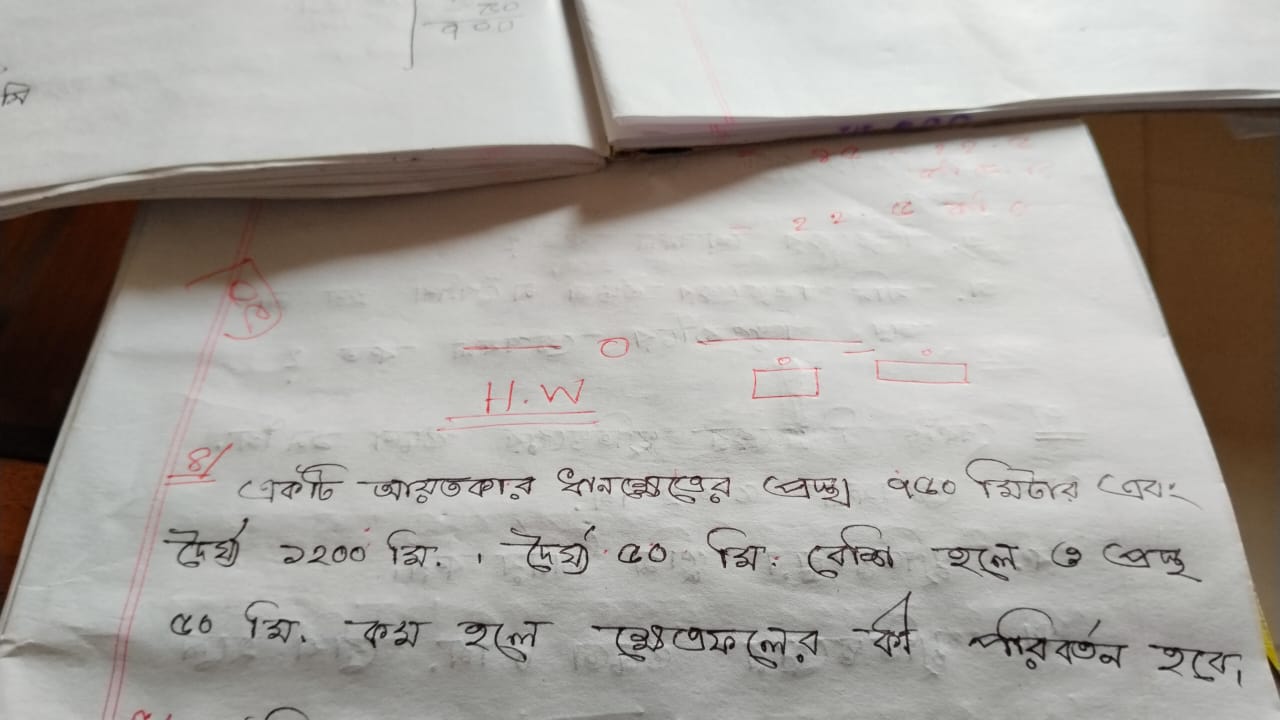 ৫০
৭০০
মি
২২.৫
H.W
৪/
একটি আয়তকার ধানক্ষেত্রের প্রস্থ ৭৫০ মিটার এবং
দৈর্ঘ্য ১২০০ মি.। দৈর্ঘ্য ৫০ মি. বেশি হলে ও প্রস্থ
৫০ মি. কম হলে ক্ষেত্রফলের কী পরিবর্তন হবে।